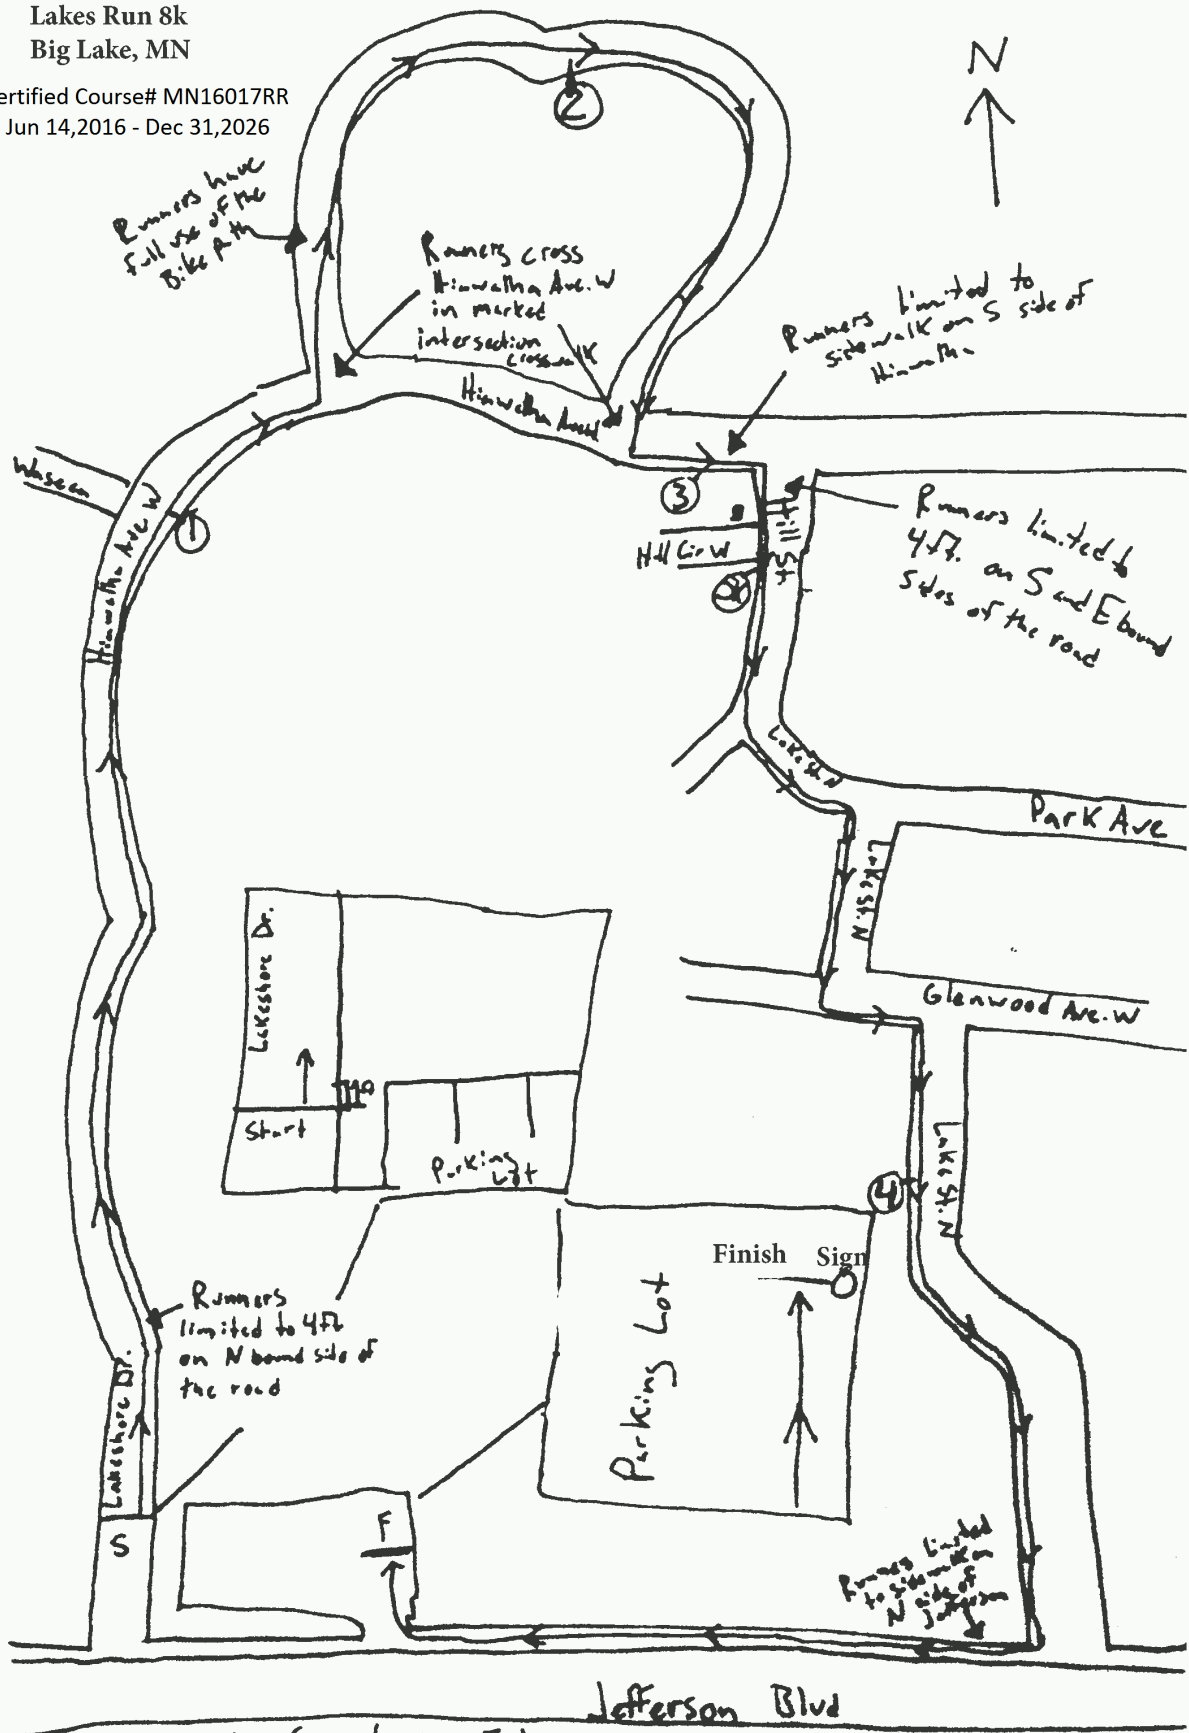 Lakes Run 8k
Big Lake, MN
ertified Course# MN16017RR
Jun 14,2016 - Dec 31,2026
N
2
Runners have
full use of the
Bike Path
Runners cross
Hiawatha Ave. W
in marked
intersection
crosswalk
Runners limited to
sidewalk on S side of
Hiawatha
Hiawatha
3
Hill St
Runners limited to
4ft. on S and E bound
sides of the road
1
Hiawatha Ave W
Hill Cir W
Lake St. N
Park Ave
Lake St. N
Lakeshore Dr.
Glenwood Ave. W
Start
Parking
Lot
Lake St. N
4
Finish Sign
Parking Lot
Runners
limited to 4ft
on N bound side of
the road
Lakeshore Dr.
S
F
Runners Limited
to sidewalk on
N side of
Jefferson
Jefferson Blvd